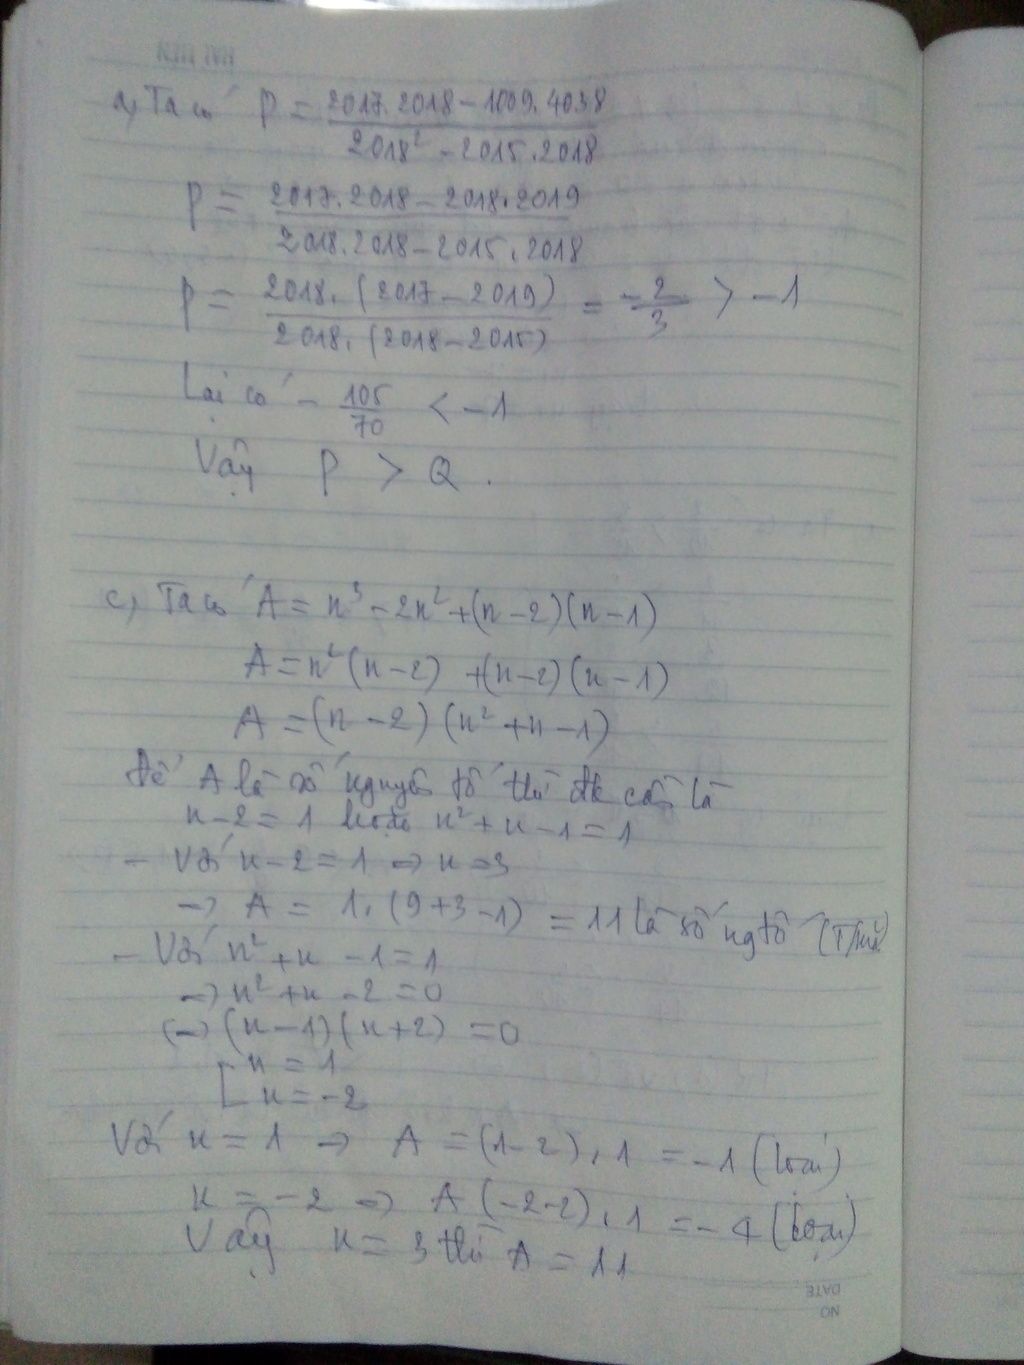 a, Ta có P = 2017.2018 - 1009.4038 / 2018² - 2015.2018
P = 2017.2018 - 2018.2019 / 2018.2018 - 2015.2018
P = 2018.(2017 - 2019) / 2018.(2018 - 2015) = -2/3 > -1
Lại có - 105/70 < -1
Vậy P > Q.
c, Ta có A = n³ - 2n² + (n - 2)(n - 1)
A = n²(n - 2) + (n - 2)(n - 1)
A = (n - 2)(n² + n - 1)
Để A là số nguyên tố thì đk cần là
n - 2 = 1 hoặc n² + n - 1 = 1
- Với n - 2 = 1 => n = 3
=> A = 1.(9 + 3 - 1) = 11 là số ng tố (T/m)
- Với n² + n - 1 = 1
=> n² + n - 2 = 0
(=> (n - 1)(n + 2) = 0
[ n = 1
n = -2
Với n = 1 => A = (1 - 2).1 = -1 (loại)
n = -2 => A (-2 - 2).1 = -4 (loại)
Vậy n = 3 thì A = 11
DATE
NO